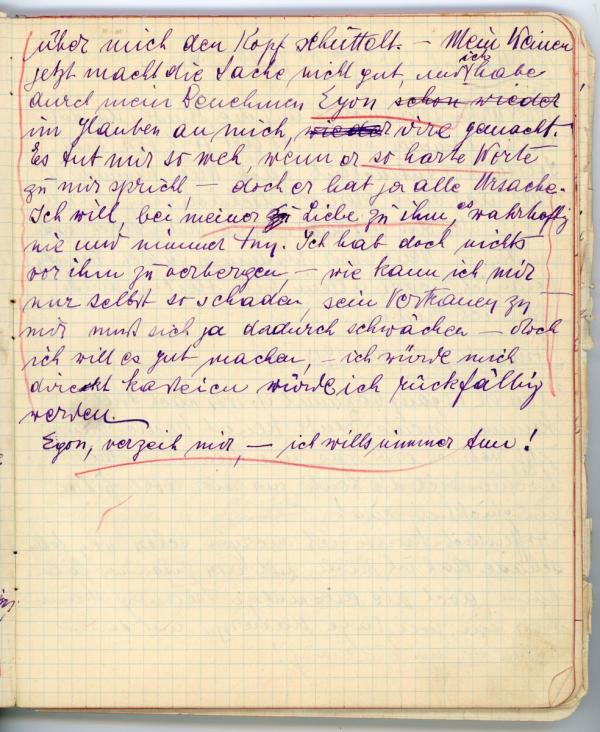 über mich den Kopf schüttelt. — Mein Weinen
jetzt macht die Sache nicht gut, und ich habe
durch mein Benehmen Egon schon wieder
im Glauben an mich, wieder irre gemacht.
Es tut mir so weh, wenn er so harte Worte
zu mir spricht, — doch er hat ja alle Ursache.
Ich will, bei meiner Liebe zu ihm, es wahrhaftig
nie und nimmer tun. Ich hab doch nichts
vor ihm zu verbergen, — wie kann ich mir
nur selbst so schaden, sein Vertrauen zu —
mir muß sich ja dadurch schwächen — doch
ich will es gut machen, — ich würde mich
direkt kasteien würde ich rückfällig
werden.
Egon, verzeih mir, — ich wills nimmer tun!